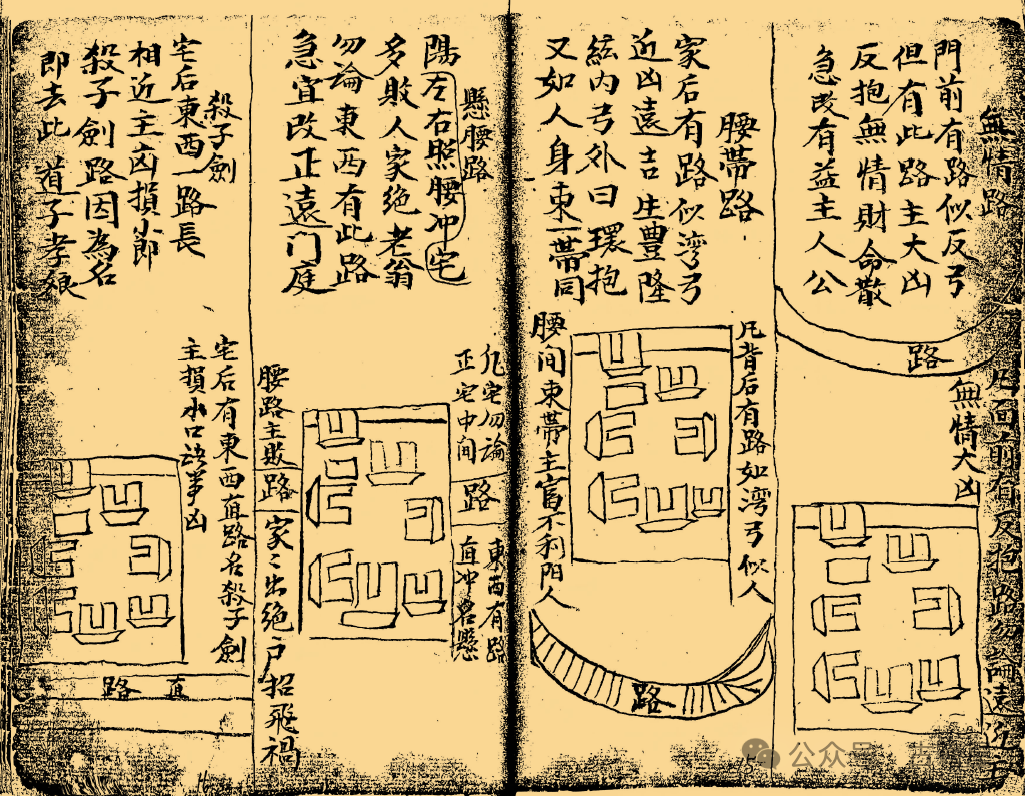 無情路
門前有路似反弓
但有此路主大凶
反抱無情財命散
急改有益主人公
路
凡面前有反抱路勿論遠近主
無情大凶
腰帶路
家后有路似湾弓
近凶遠吉生豊隆
絃内弓外曰環抱
又如人身束一帶同
凡背后有路如湾弓似人
腰间束帶主官不利阳人
路
15
懸腰路
陽左右照腰冲宅
多敗人家絶老翁
勿論東西有此路
急宜改正遠门庭
凡宅勿論
正宅中间
路
東西有路
直冲名懸
腰路主敗
路
家々出絶户招飛禍
殺子劍
宅后東西一路長
相近主凶損小郎
殺子劍路因為名
即去此道子孝娘
宅后有東西直路名殺子劍
主損小口訟事凶
直路
16
公众号